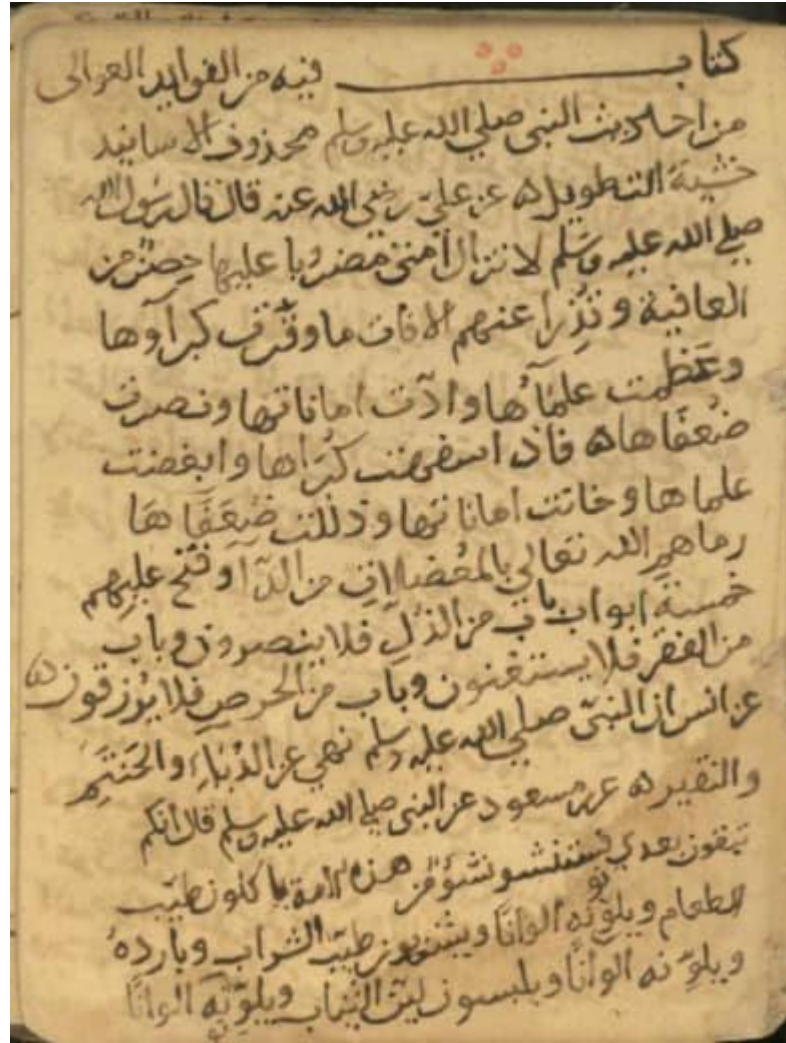 كتاب فيه من الفوايد العوالى
من احاديث النبى صلى الله عليه وسلم محذوف الاسانيد
خشية التطويل ه عن علىّ رضى الله عنه قال قال رسول الله
صلى الله عليه وسلم لا تزال امتى مضروبا عليها حِصْن من
العافية وتُدْرا عنهم الافات ما وقّرت كبرآوها
وعَظّمت علمآءُها وادّت اماناتها ونصرت
ضُعَفَاها ه فاذا كُبَرَاها وابغضت
علماها وخانت اماناتها وذللت ضِعَفَاهَا
رماهم الله تعالى بالمعُضلاتِ من الدّآ وفتح عليهم
خمسة ابواب باب من الذلِ فلا ينصرون وباب
من الفقر فلا يستغنون وباب من الحرص فلا يُرزقون ه
عن انس ان النبىّ صلى الله عليه وسلم نهى عن الدُبّاءِ والحَنتَمِ
والنقير ه عن مسعود عن النبى صلى الله عليه وسلم قال انكم
تبقون بعدي نشؤ من هذه الامة ياكلون طيّب
الطعام ويلوّنونه الوانًا ويشربون طيّب الشراب وباردهُ
ويلوّنه الوانًا ويلبسون ليّن الثياب ويلوّنه الوانًا